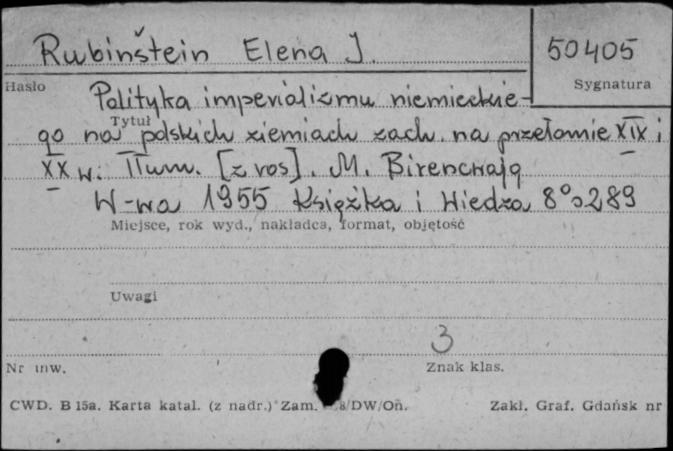 Rubinštein Elena J.
50405
Hasło
Sygnatura
Polityka imperializmu niemieckie-
Tytuł
go na polskich ziemiach zach. na przełomie XIX i
XX w. Tłum. [z ros]. M.
W-wa 1955 Książka i Wiedza 8° s 289
Miejsce, rok wyd., nakładca, format, objętość
Uwagi
3
Nr inw.
Znak klas.
CWD. B 15a. Karta katal. (z nadr.) Zam. 8/DW/Oń.
Zakł. Graf. Gdańsk nr